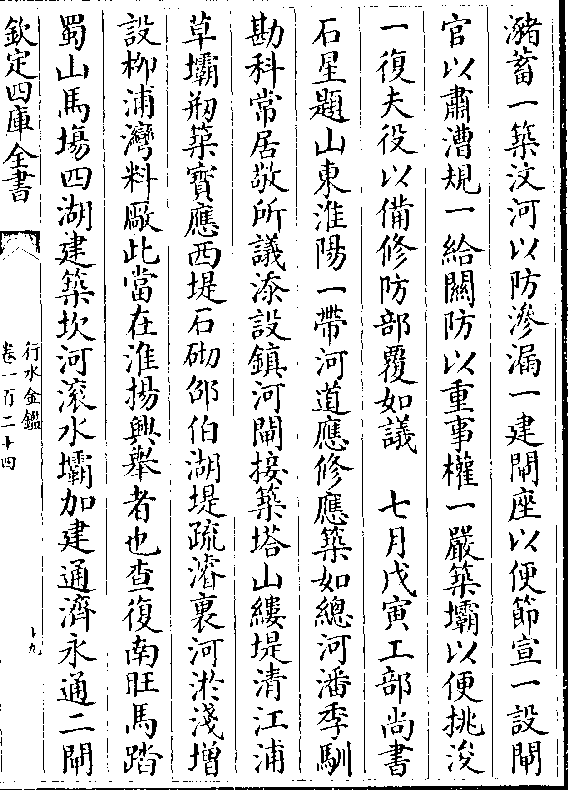 瀦蓄一築汶河以防滲漏一建閘座以便節宣一設閘
官以肅漕規一給關防以重事權一嚴築壩以便挑浚
一復夫役以備修防部覆如議　七月戊寅工部尚書
石星題山東淮陽一帶河道應修應築如總河潘季馴
勘科常居敬所議添設鎮河閘接築塔山縷堤清江浦
草壩剏築寳應西堤石砌邵伯湖堤疏濬裏河淤淺增
設柳浦灣料厰此當在淮揚興舉者也查復南旺馬踏
蜀山馬塲四湖建築坎河滚水壩加建通濟永通二閘
欽定四庫全書
行水金鑑
卷一百二十四
十九